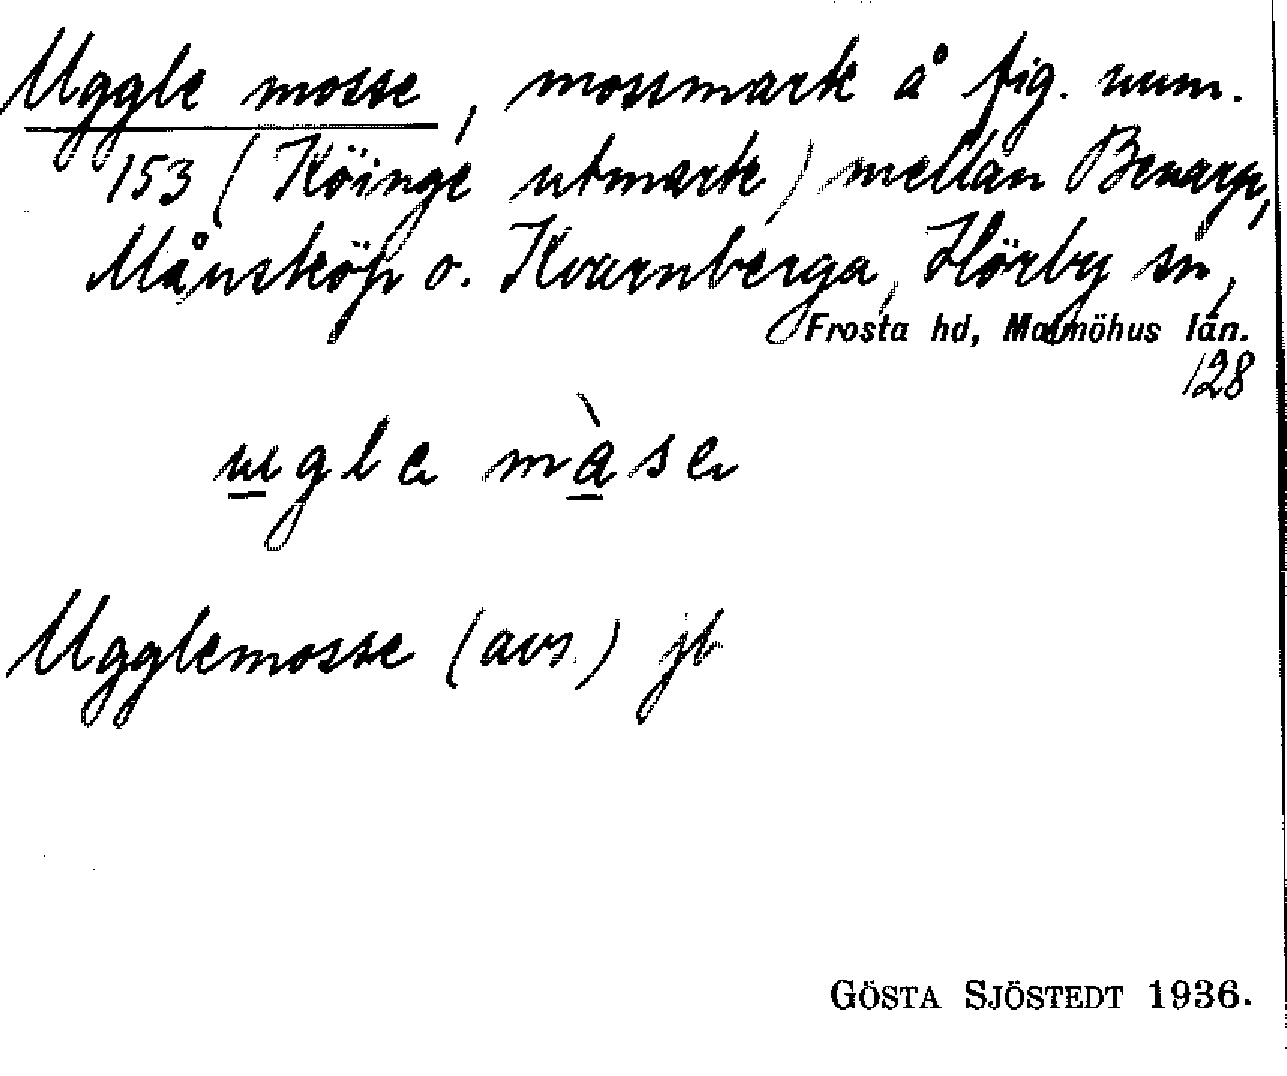 Uggle mosse, mossmark å fig. num.
153 (Köinge utmark) mellan Benarp,
Månsköp o. Kvarnberga, Hörby sn,
Frosta hd, Malmöhus län.
128
ugle màse
Ugglemosse (avs.) jb
GÖSTA SJÖSTEDT 1936.